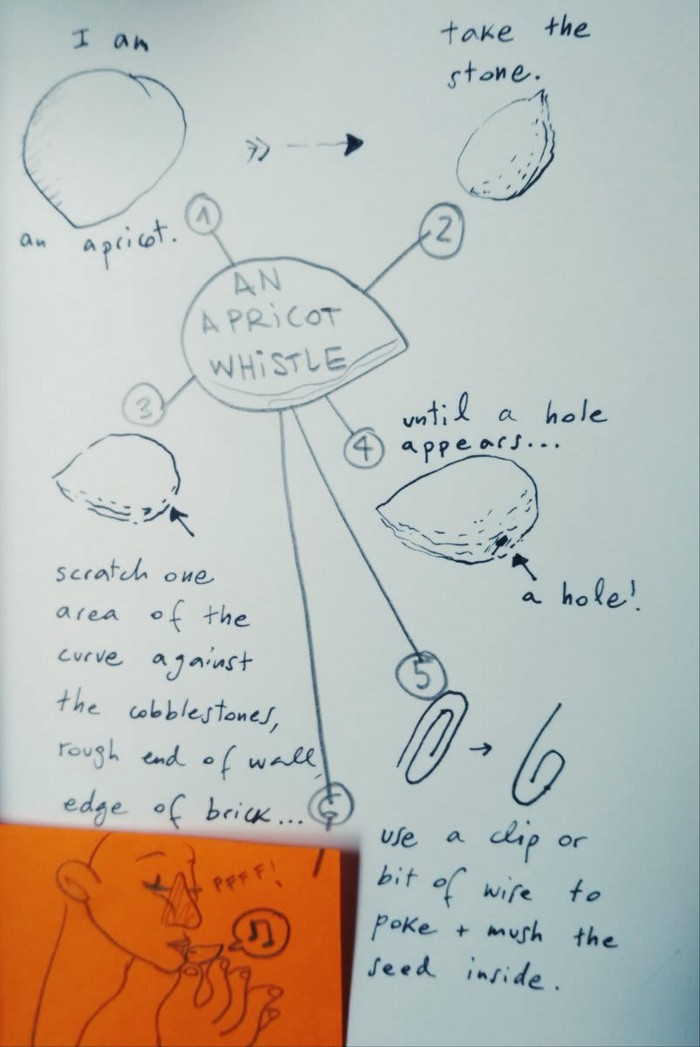 I am
an apricot.
take the
stone.
1
2
AN
APRICOT
WHiSTLE
3
4
until a hole
appears...
a hole!
scratch one
area of the
curve against
the cobblestones,
rough end of wall,
edge of brick...
5
use a clip or
bit of wire to
poke + mush the
seed inside.
6
PFFF!